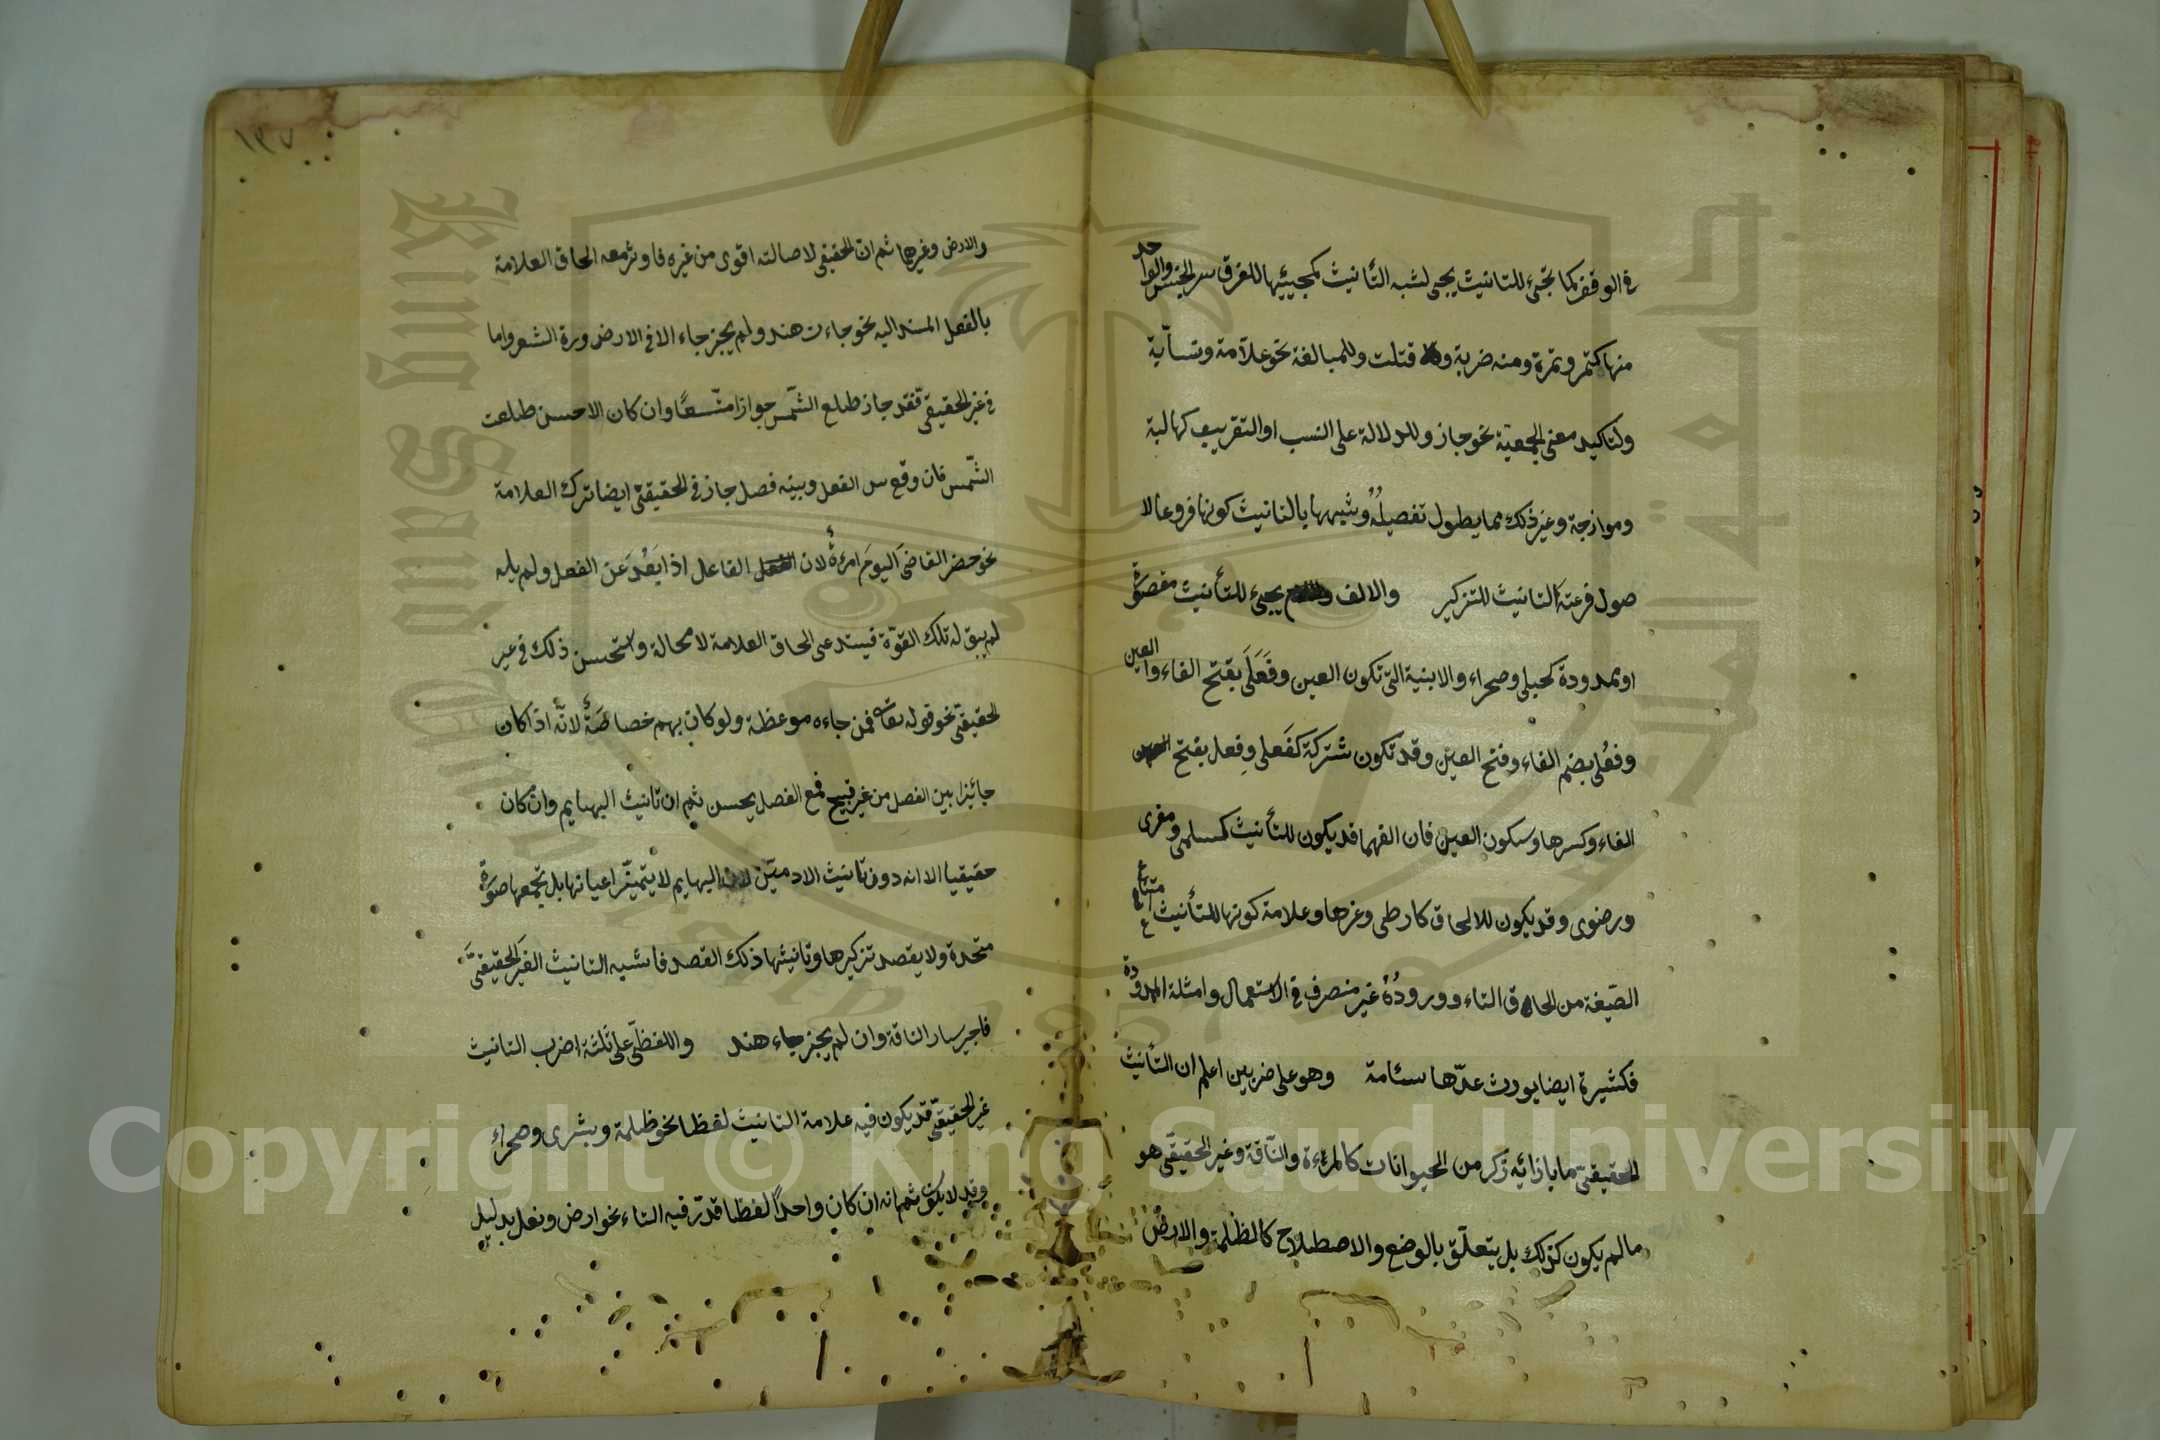 رة الوقف كما تجئ للتانيث يجئ لشبه التأنيث كمجيئها للفرق بين الجنس والواحد
منها كتمر وتمرة ومنه ضربة و قتلت وللمبالغة نحو علّامة ونسّابة
ولتاكيد معنى الجمعية نحو حجاز وللدلالة على النسب او التعريب كمهالبة
وموازجة وغير ذلك مما يطول تفصيلُهُ وشبهها بالتانيث كونها فروعا لا
صول فرعيّة التانيث للتزكير والالف يجئ للتأنيث مقصورة
او ممدودة كحبلى وصحراء والابنية التى تكون العين وفَعَلَى بفتح الفاء والعين
وفعُلى بضم الفاء وفتح العين وقد تكون مشتركة كفَعلى وفِعلى بفتح
الفاء وكسرها وسكون العين فان الفهما قد يكون للتأنيث كسلمى ومغرى
ورضوى وقد يكون للالحاق كارطى وغرها وعلامة كونها للتأنيث امتناع
الصّيغة من الحاق التاء وورودُهُ غير منصرف فى الاستعمال وامثلة الممدودة
فكثيرة ايضا يورث عدّها سئامة وهو على ضربين اعلم ان التأنيث
الحقيقىّ ما بازائه زكر من الحيوانات كالمرءة والنّاقة وغير الحقيقىّ هو
ما لم يكون كزلك بل يتعلّق بالوضع والاصطلاح كالظلمة والارض
١٣٧
والارض وغيرها ثم ان الحقيقى لاصالته اقوى من غيره فاوثر معه الحاق العلامة
بالفعل المسند اليه نحو جاءت هند ولم يجز جاء الا فى الارض ورة الشعر واما
فى غير الحقيقىّ فقد جاز طلع الشّمس جوازا متّسعًا وان كان الاحسن طلعت
الشّمس فان وقع بين الفعل وبينه فصل جاز فى الحقيقىّ ايضا ترك العلامة
نحو حضر القاضىَ اليومَ امرءةٌ لان الفاعل اذا بَعُدَ عَن الفعل ولم يله
لم يبق له تلك القوّة فيستدعى الحاق العلامة لا محالة واستحسن ذلك فى غير
الحقيقىّ نحو قوله تعالى فمن جاءه موعظة ولو كان بهم خصاصَةٌ لانّه اذا كان
جائزا بين الفصل من غير قبيح فمع الفصل يحسن ثم ان تانيث البهايم وان كان
حقيقيا الا انه دون تانيث الادميّين لان البهايم لا يتميّز اعيانها بل تجمعها صورة
متحدة ولا يقصد تزكيرها وتانيثها ذلك القصد فاشبه التانيث الغير الحقيقىّ
فاجيز سار الناقة وان لم يجز جاء هند واللفظىّ على ثلثة اضرب التانيث
غير الحقيقىّ قد يكون فيه علامة التانيث لفظا نحو ظلمة وبشرى وصحراء
وقد لا يكون ثم انه ان كان واحدًا لفظا قدّر فيه التاء نحو ارض ونعل بدليل